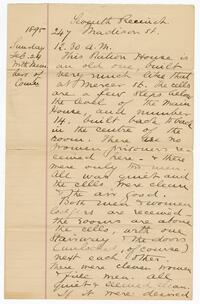 Seventh Precinct
1895
247 Madison St.
Sunday
Feb. 24
With Mem
bers of
Comtee
12.30 A.M.
This Station House is
an old one, built
very much like that
at Mercer St. The cells
are a few steps below
the level of the Main
House, and number
14, built back to back
in the centre of the
room. There are no
women prisoners re-
ceived here - & there
were only two men.
All was quiet and
the cells were clean
& the air good.
Both men & women
lodgers are received -
the rooms are above
the cells, with one
Stairway & the doors
(unlocked, of course)
next each other.
There were eleven women
& five men - all
quiet & seemed clean.
If it were cleaned